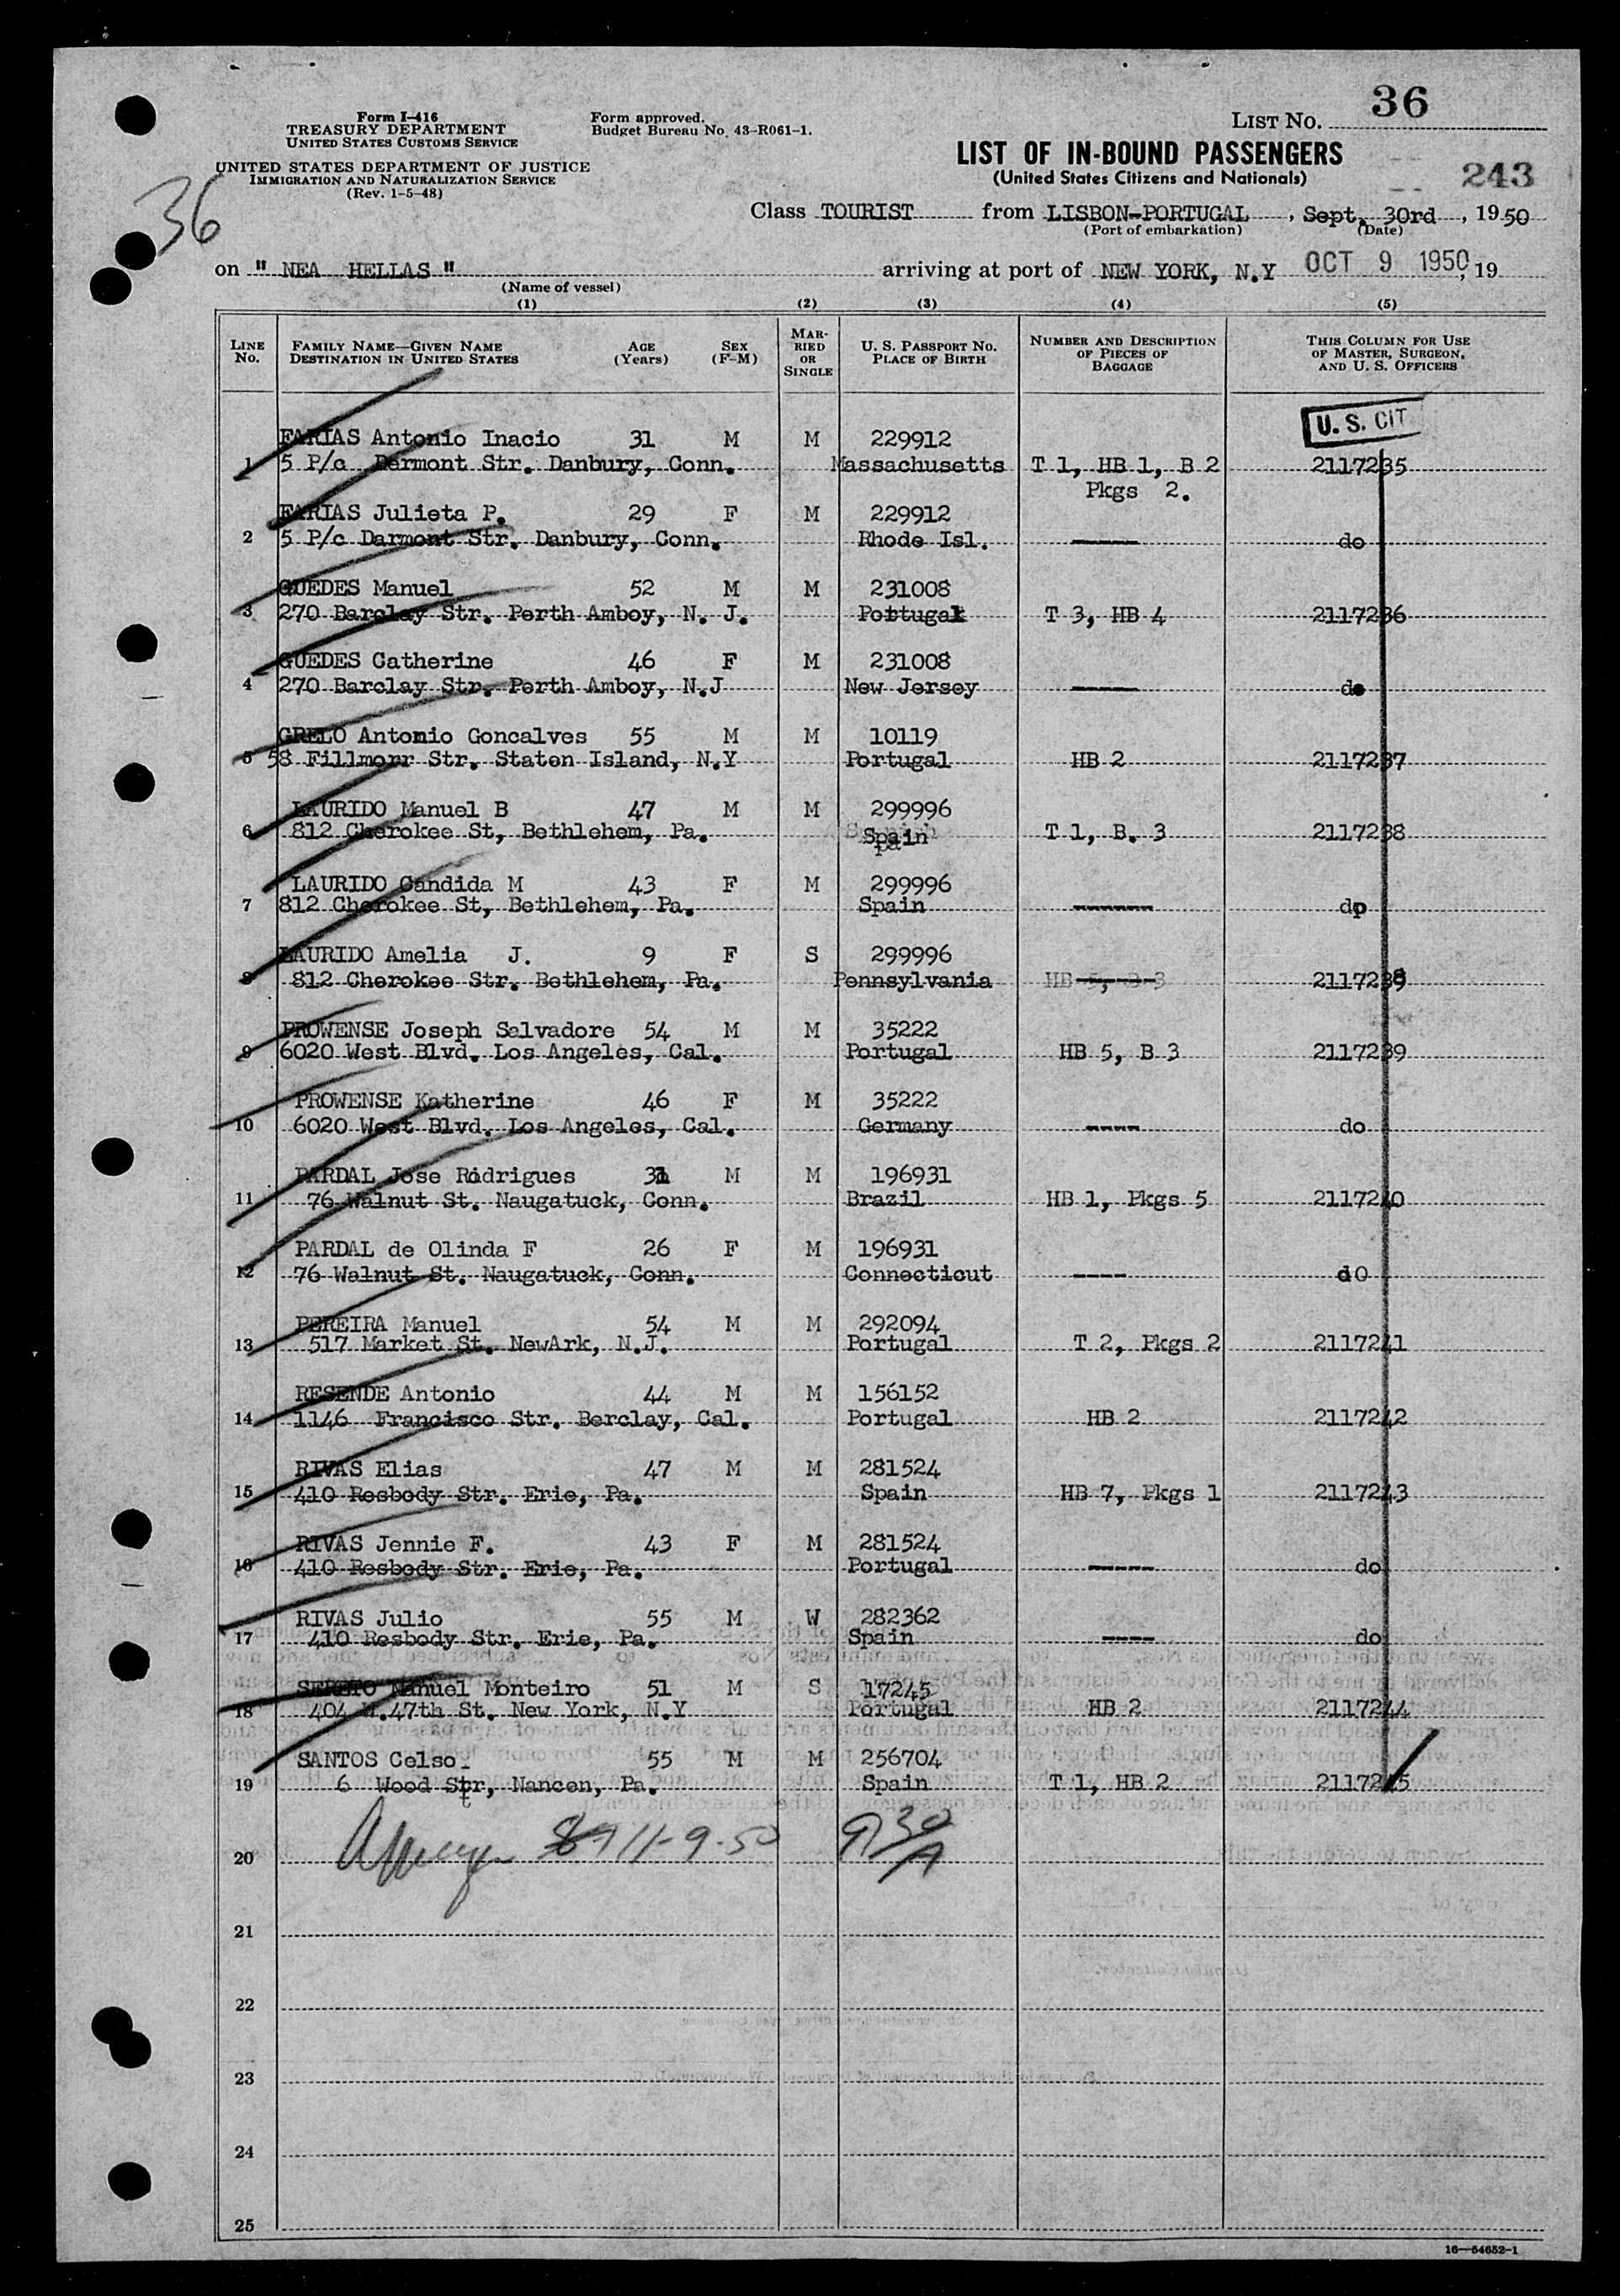 Form I-416
TREASURY DEPARTMENT
UNITED STATES CUSTOMS SERVICE
UNITED STATES DEPARTMENT OF JUSTICE
IMMIGRATION AND NATURALIZATION SERVICE
(Rev. 1-5-48)
Form approved.
Budget Bureau No. 43-R061-1.
LIST NO. 36
LIST OF IN-BOUND PASSENGERS
(United States Citizens and Nationals)
243
36
Class TOURIST from LISBON-PORTUGAL, Sept. 30rd, 1950
(Port of embarkation) (Date)
on " NEA HELLAS " arriving at port of NEW YORK, N.Y OCT 9 1950, 19
(Name of vessel)
(1) (2) (3) (4) (5)
LINE No. FAMILY NAME—GIVEN NAME DESTINATION IN UNITED STATES AGE (Years) SEX (F-M) MARRIED OR SINGLE U. S. PASSPORT NO. PLACE OF BIRTH NUMBER AND DESCRIPTION OF PIECES OF BAGGAGE THIS COLUMN FOR USE OF MASTER, SURGEON, AND U. S. OFFICERS
U. S. CIT
FARIAS Antonio Inacio 31 M M 229912
1 5 P/c Darmont Str. Danbury, Conn. Massachusetts T 1, HB 1, B 2 2117235
Pkgs 2.
FARIAS Julieta P. 29 F M 229912
2 5 P/c Darmont Str. Danbury, Conn. Rhode Isl. ----- do
GUEDES Manuel 52 M M 231008
3 270 Barclay Str. Perth Amboy, N. J. Portugal T 3, HB 4 2117236
GUEDES Catherine 46 F M 231008
4 270 Barclay Str. Perth Amboy, N.J New Jersey ----- do
GRELO Antonio Goncalves 55 M M 10119
5 58 Fillmorr Str. Staten Island, N.Y Portugal HB 2 2117237
LAURIDO Manuel B 47 M M 299996
6 812 Cherokee St, Bethlehem, Pa. Spain T 1, B. 3 2117238
LAURIDO Candida M 43 F M 299996
7 812 Cherokee St, Bethlehem, Pa. Spain ------ do
LAURIDO Amelia J. 9 F S 299996
8 812 Cherokee Str. Bethlehem, Pa. Pennsylvania HB 5, B 3 2117238
PROWENSE Joseph Salvadore 54 M M 35222
9 6020 West Blvd. Los Angeles, Cal. Portugal HB 5, B 3 2117239
PROWENSE Katherine 46 F M 35222
10 6020 West Blvd. Los Angeles, Cal. Germany ---- do
PARDAL Jose Rodrigues M M 196931
11 76 Walnut St. Naugatuck, Conn. Brazil HB 1, Pkgs 5 2117240
PARDAL de Olinda F 26 F M 196931
12 76 Walnut St. Naugatuck, Conn. Connecticut ---- dO
PEREIRA Manuel 54 M M 292094
13 517 Market St. NewArk, N.J. Portugal T 2, Pkgs 2 2117241
RESENDE Antonio 44 M M 156152
14 1146 Francisco Str. Berclay, Cal. Portugal HB 2 2117242
RIVAS Elias 47 M M 281524
15 410 Rosbody Str. Erie, Pa. Spain HB 7, Pkgs 1 2117243
RIVAS Jennie F. 43 F M 281524
16 410 Rosbody Str. Erie, Pa. Portugal ----- do
RIVAS Julio 55 M W 282362
17 410 Rosbody Str. Erie, Pa. Spain ---- do
Manuel Monteiro 51 M S 17245
18 404 W.47th St. New York, N.Y Portugal HB 2 2117244
SANTOS Celso. 55 M M 256704
19 6 Wood Str, Nancen, Pa. Spain T 1, HB 2 2117245
20 11-9-50
21
22
23
24
25
16—54652-1